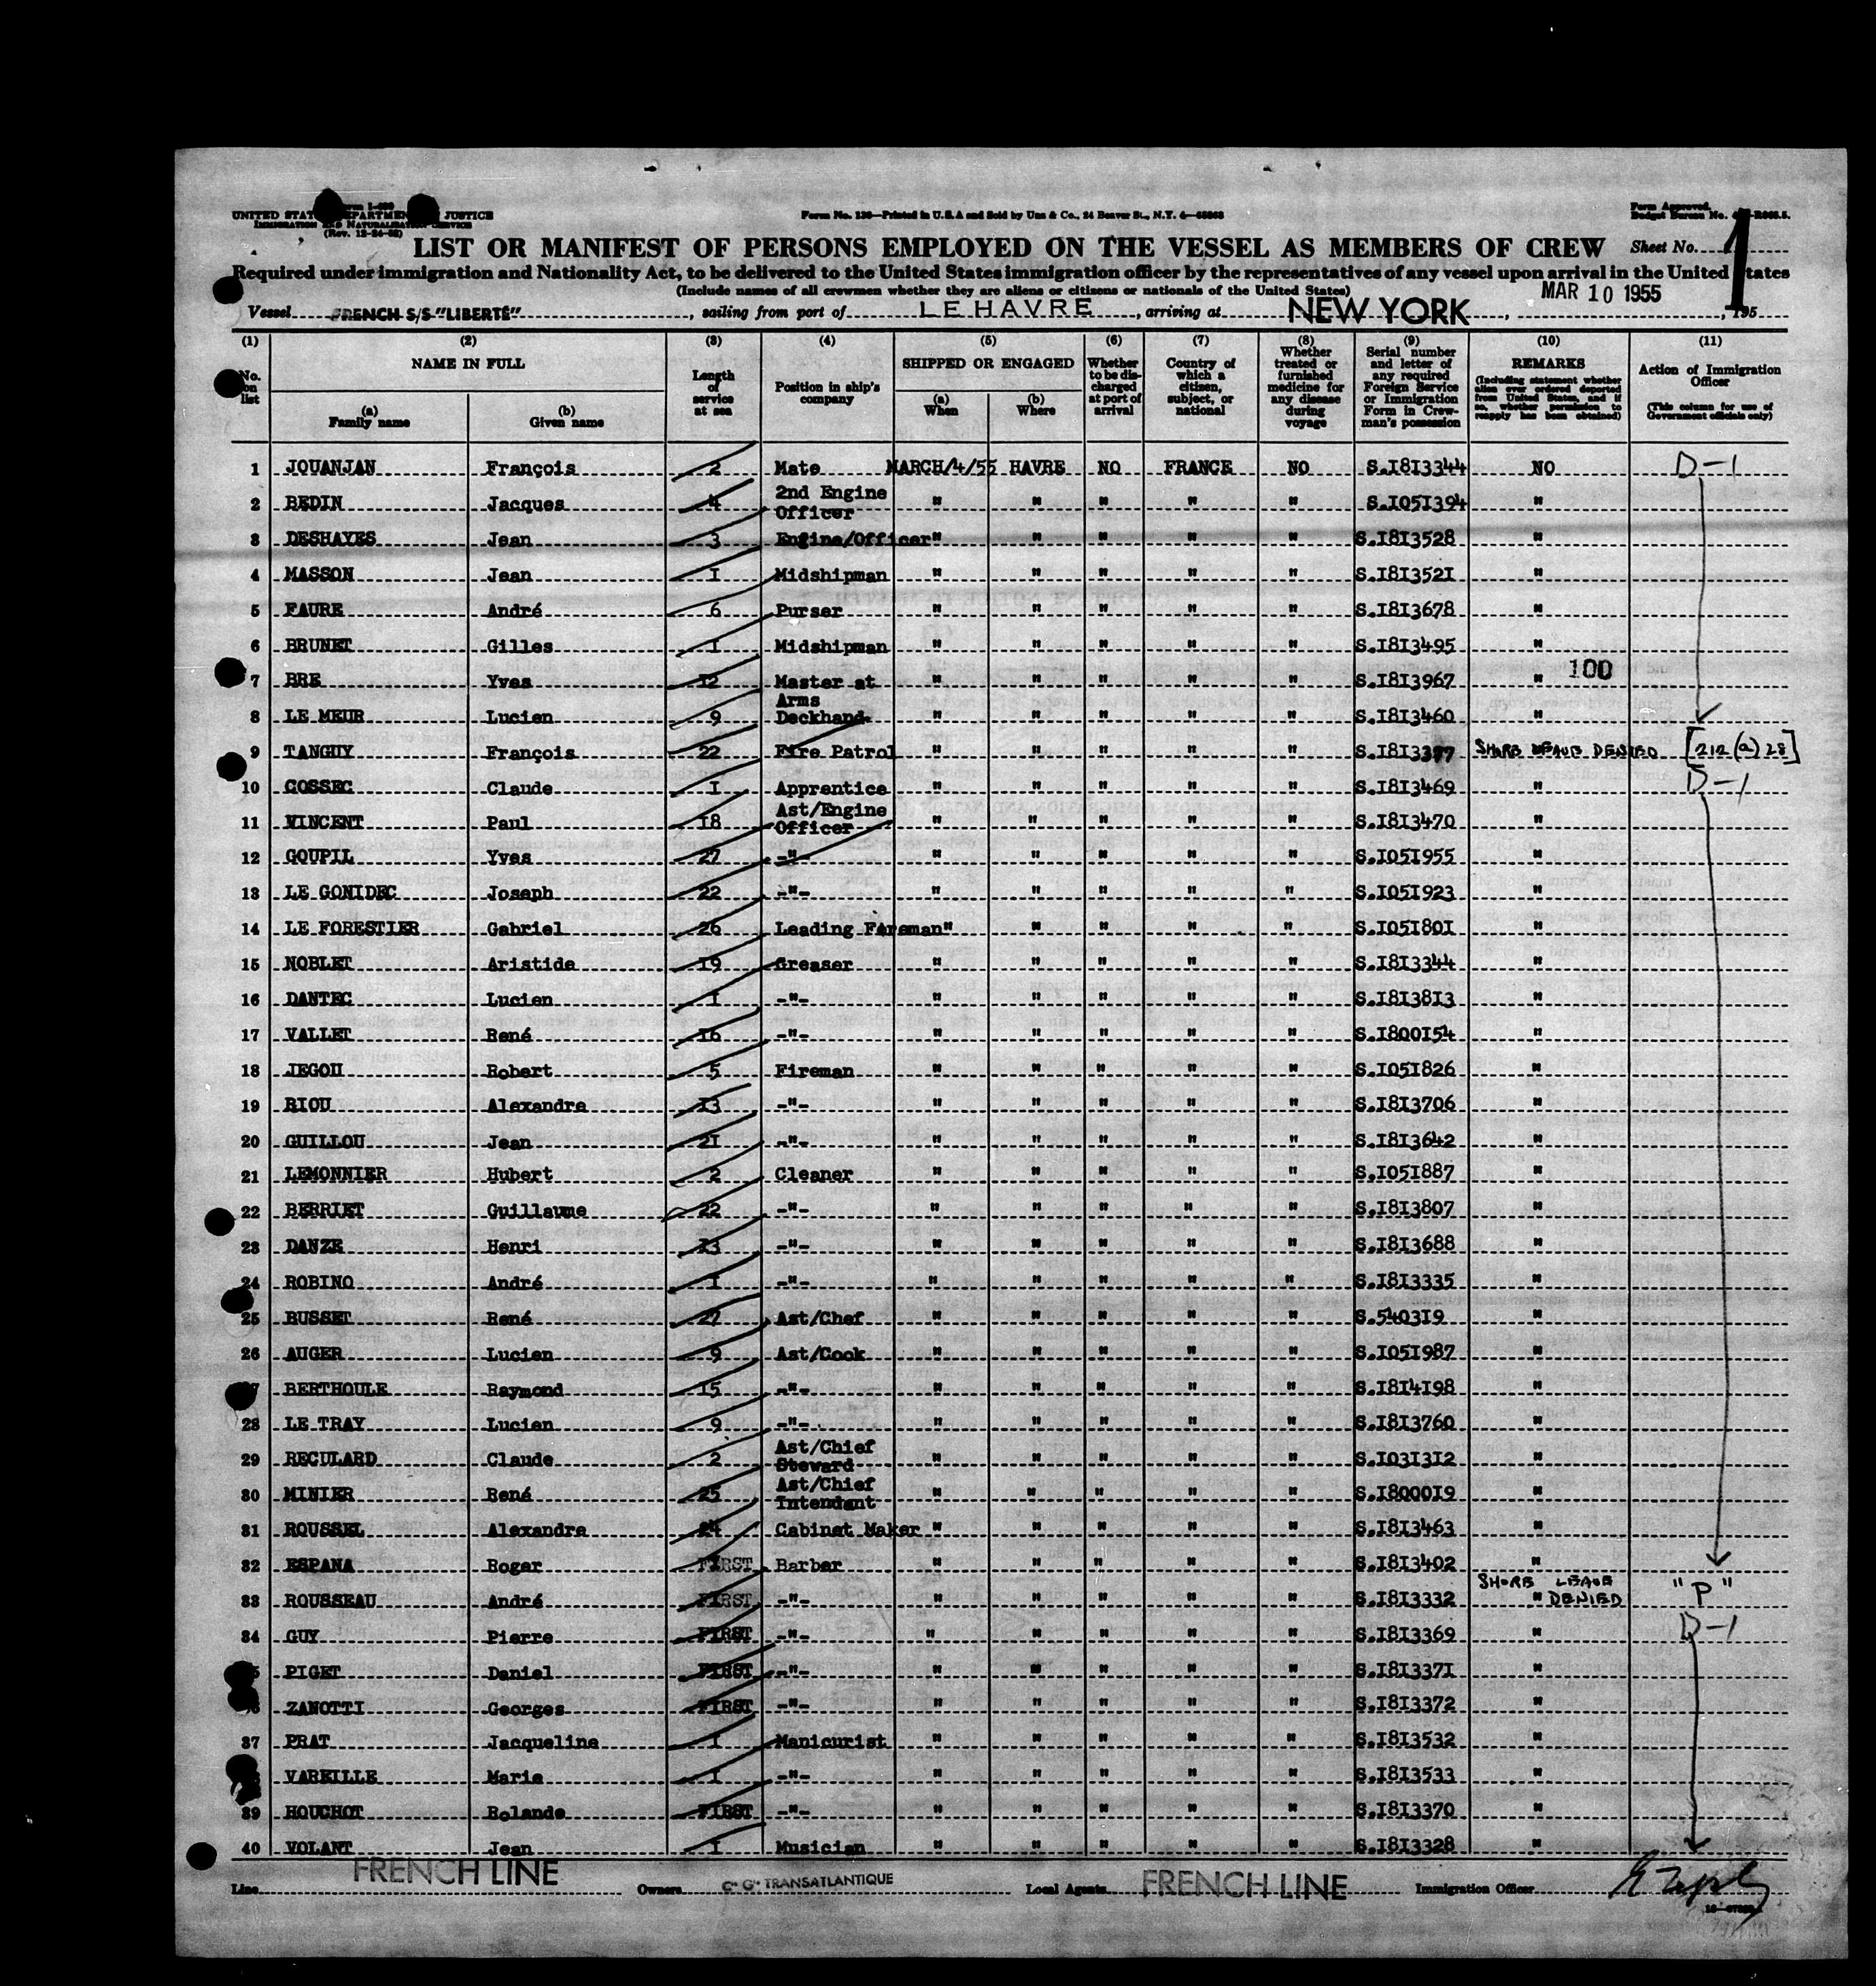 UNITED STATES DEPARTMENT JUSTICE
IMMIGRATION AND NATURALIZATION SERVICE
(Rev. 12-24-52)
Form No. 130—Printed in U.S.A and Sold by Unz & Co., 24 Beaver St., N.Y. 4—
Form Approved.
Budget Bureau No.
LIST OR MANIFEST OF PERSONS EMPLOYED ON THE VESSEL AS MEMBERS OF CREW Sheet No. 1
Required under immigration and Nationality Act, to be delivered to the United States immigration officer by the representatives of any vessel upon arrival in the United States
(Include names of all crewmen whether they are aliens or citizens or nationals of the United States)
MAR 10 1955
Vessel FRENCH S/S "LIBERTÉ", sailing from port of LE HAVRE, arriving at NEW YORK, , 195
(1) (2) (3) (4) (5) (6) (7) (8) (9) (10) (11)
No. on list
NAME IN FULL
(a) Family name
(b) Given name
Length of service at sea
Position in ship's company
SHIPPED OR ENGAGED
(a) When
(b) Where
Whether to be discharged at port of arrival
Country of which a citizen, subject, or national
Whether treated or furnished medicine for any disease during voyage
Serial number and letter of any required Foreign Service or Immigration Form in Crewman's possession
REMARKS
(Including statement whether alien ever ordered deported from United States, and if so, whether permission to reapply has been obtained)
Action of Immigration Officer
(This column for use of Government officials only)
1 JOUANJAN François 2 Mate MARCH/4/55 HAVRE NO FRANCE NO S.I8I3344 NO D-1
2 BEDIN Jacques 4 2nd Engine Officer " " " " " S.I05I394 "
3 DESHAYES Jean 3 Engine/Officer " " " " " S.I8I3528 "
4 MASSON Jean I Midshipman " " " " " S.I8I352I "
5 FAURE André 6 Purser " " " " " S.I8I3678 "
6 BRUNET Gilles I Midshipman " " " " " S.I8I3495 "
7 BRE Yves I2 Master at Arms " " " " " S.I8I3967 " 100
8 LE MEUR Lucien 9 Deckhand " " " " " S.I8I3460 "
9 TANGUY François 22 Fire Patrol " " " " " S.I8I3377 SHORE LEAVE DENIED [212 (a) 28]
10 COSSEC Claude I Apprentice " " " " " S.I8I3469 " D-1
11 VINCENT Paul I8 Ast/Engine Officer " " " " " S.I8I3470 "
12 GOUPIL Yves 27 -"- " " " " " S.I05I955 "
13 LE GONIDEC Joseph 22 -"- " " " " " S.I05I923 "
14 LE FORESTIER Gabriel 26 Leading Fireman " " " " " S.I05I80I "
15 NOBLET Aristide I9 Greaser " " " " " S.I8I3344 "
16 DANTEC Lucien I -"- " " " " " S.I8I38I3 "
17 VALLET René I6 -"- " " " " " S.I800I54 "
18 JEGOU Robert 5 Fireman " " " " " S.I05I826 "
19 RIOU Alexandre I3 -"- " " " " " S.I8I3706 "
20 GUILLOU Jean 2I -"- " " " " " S.I8I3642 "
21 LEMONNIER Hubert 2 Cleaner " " " " " S.I05I887 "
22 BERRIET Guillaume 22 -"- " " " " " S.I8I3807 "
23 DANZE Henri I3 -"- " " " " " S.I8I3688 "
24 ROBINO André I -"- " " " " " S.I8I3335 "
25 BUSSET René 27 Ast/Chef " " " " " S.5403I9 "
26 AUGER Lucien 9 Ast/Cook " " " " " S.I05I987 "
27 BERTHOULE Raymond I5 -"- " " " " " S.I8I4I98 "
28 LE TRAY Lucien 9 -"- " " " " " S.I8I3760 "
29 RECULARD Claude 2 Ast/Chief Steward " " " " " S.I03I3I2 "
30 MINIER René 25 Ast/Chief Intendant " " " " " S.I8000I9 "
31 ROUSSEL Alexandre 24 Cabinet Maker " " " " " S.I8I3463 "
32 ESPANA Roger FIRST Barber " " " " " S.I8I3402 "
33 ROUSSEAU André FIRST -"- " " " " " S.I8I3332 " SHORE LEAVE DENIED "P"
34 GUY Pierre FIRST -"- " " " " " S.I8I3369 " D-1
PIGET Daniel FIRST -"- " " " " " S.I8I337I "
ZANOTTI Georges FIRST -"- " " " " " S.I8I3372 "
37 PRAT Jacqueline I Manicurist " " " " " S.I8I3532 "
VAREILLE Marie I -"- " " " " " S.I8I3533 "
39 HOUCHOT Rolande FIRST -"- " " " " " S.I8I3370 "
40 VOLANT Jean I Musician " " " " " S.I8I3328 "
Line FRENCH LINE Owners Cie Gle TRANSATLANTIQUE Local Agents FRENCH LINE Immigration Officer